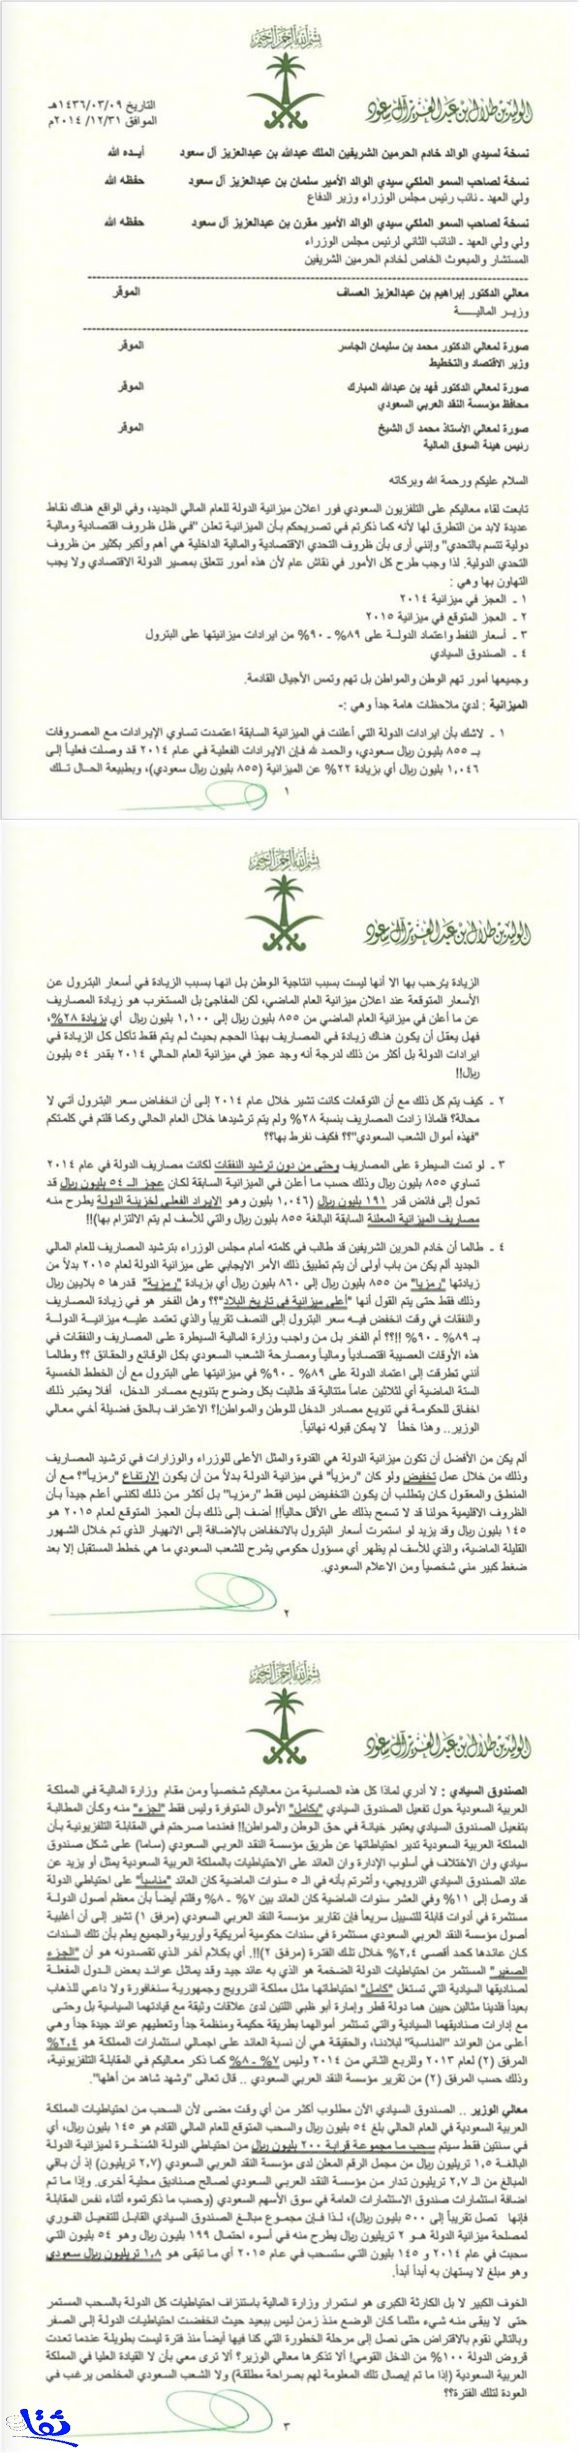 بسم الله الرحمن الرحيم
الوليد بن طلال بن عبد العزيز آل سعود
التاريخ ١٤٣٦/٠٣/٠٩هـ
الموافق ٢٠١٤/١٢/٣١م
نسخة لسيدي الوالد خادم الحرمين الشريفين الملك عبدالله بن عبدالعزيز آل سعود أيـده الله
نسخة لصاحب السمو الملكي سيدي الوالد الأمير سلمان بن عبدالعزيز آل سعود حفظه الله
ولي العهد ـ نائب رئيس مجلس الوزراء وزير الدفاع
نسخة لصاحب السمو الملكي سيدي الوالد الأمير مقرن بن عبدالعزيز آل سعود حفظه الله
ولي ولي العهد ـ النائب الثاني لرئيس مجلس الوزراء
المستشار والمبعوث الخاص لخادم الحرمين الشريفين
معالي الدكتور إبراهيم بن عبدالعزيز العساف الموقر
وزيـر الماليـــــة
صورة لمعالي الدكتور محمد بن سليمان الجاسر الموقر
وزير الاقتصاد والتخطيط
صورة لمعالي الدكتور فهد بن عبدالله المبارك الموقر
محافظ مؤسسة النقد العربي السعودي
صورة لمعالي الأستاذ محمد آل الشيخ الموقر
رئيس هيئة السوق المالية
السلام عليكم ورحمة الله وبركاته
تابعت لقاء معاليكم على التلفزيون السعودي فور اعلان ميزانية الدولة للعام المالي الجديد، وفي الواقع هناك نقاط
عديدة لابد من التطرق لها لأنه كما ذكرتم في تصريحكم بأن الميزانية تعلن "في ظل ظروف اقتصادية ومالية
دولية تتسم بالتحدي" وإنني أرى بأن ظروف التحدي الاقتصادية والمالية الداخلية هي أهم وأكبر بكثير من ظروف
التحدي الدولية. لذا وجب طرح كل الأمور في نقاش عام لأن هذه أمور تتعلق بمصير الدولة الاقتصادي ولا يجب
التهاون بها وهي :
١ ـ العجز في ميزانية ٢٠١٤
٢ ـ العجز المتوقع في ميزانية ٢٠١٥
٣ ـ أسعار النفط واعتماد الدولــة على ٨٩% ـ ٩٠% من ايرادات ميزانيتها على البترول
٤ ـ الصندوق السيادي
وجميعها أمور تهم الوطن والمواطن بل تهم وتمس الأجيال القادمة.
الميزانية : لديّ ملاحظات هامة جداً وهي :-
١ ـ لاشك بأن ايرادات الدولة التي أعلنت في الميزانية السابقة اعتمدت تساوي الإيرادات مـع المصروفات
بـ ٨٥٥ بليون ريال سعودي، والحمد لله فإن الايرادات الفعلية في عام ٢٠١٤ قد وصلت فعلياً إلى
١,٠٤٦ بليون ريال أي بزيادة ٢٢% عن الميزانية (٨٥٥ بليون ريال سعودي)، وبطبيعة الحال تلك
١
بسم الله الرحمن الرحيم
الوليد بن طلال بن عبد العزيز آل سعود
الزيادة يُرحب بها الا أنها ليست بسبب انتاجية الوطن بل انها بسبب الزيادة في أسعار البترول عن
الأسعار المتوقعة عند اعلان ميزانية العام الماضي، لكن المفاجئ بل المستغرب هو زيادة المصاريف
عن ما أعلن في ميزانية العام الماضي من ٨٥٥ بليون ريال إلى ١,١٠٠ بليون ريال أي بزيادة ٢٨%،
فهل يعقل أن يكون هناك زيادة في المصاريف بهذا الحجم بحيث لم يتم فقط تآكل كل الزيادة في
ايرادات الدولة بل أكثر من ذلك لدرجة أنه وجد عجز في ميزانية العام الحالي ٢٠١٤ بقدر ٥٤ بليون
ريال!!
٢ ـ كيف يتم كل ذلك مع أن التوقعات كانت تشير خلال عام ٢٠١٤ إلى أن انخفاض سعر البترول أتي لا
محالة؟ فلماذا زادت المصاريف بنسبة ٢٨% ولم يتم ترشيدها خلال العام الحالي وكما قلتم في كلمتكم
"فهذه أموال الشعب السعودي"؟؟ فكيف نفرط بها؟؟
٣ ـ لو تمت السيطرة على المصاريف وحتى من دون ترشيد النفقات لكانت مصاريف الدولة في عام ٢٠١٤
تساوي ٨٥٥ بليون ريال وذلك حسب ما أعلن في الميزانية السابقة لكان عجز الــ ٥٤ بليون ريال قد
تحول إلى فائض قدر ١٩١ بليون ريال (١,٠٤٦ بليون وهو الإيراد الفعلي لخزينة الدولة يطرح منه
مصاريف الميزانية المعلنة السابقة البالغة ٨٥٥ بليون ريال والتي للأسف لم يتم الالتزام بها)!!
٤ ـ طالما أن خادم الحرمين الشريفين قد طالب في كلمته أمام مجلس الوزراء بترشيد المصاريف للعام المالي
الجديد ألم يكن من باب أولى أن يتم تطبيق ذلك الأمر الايجابي على ميزانية الدولة لعام ٢٠١٥ بدلاً من
زيادتها "رمزيا" من ٨٥٥ بليون ريال إلى ٨٦٠ بليون ريال أي بزيادة "رمزية" قدرها ٥ بلايين ريال
وذلك فقط حتى يتم القول أنها "أعلى ميزانية في تاريخ البلاد"؟؟ وهل الفخر هو في زيادة المصاريف
والنفقات في وقت انخفض فيه سعر البترول إلى النصف تقريباً والذي تعتمد عليه ميزانيـة الدولـة
بـ ٨٩% ـ ٩٠% !!؟؟ أم الفخر بل من واجب وزارة المالية السيطرة على المصاريف والنفقات في
هذه الأوقات العصيبة اقتصادياً ومالياً ومصارحة الشعب السعودي بكل الوقائع والحقائق ؟؟ وطالما
أنني تطرقت إلى اعتماد الدولة على ٨٩% ـ ٩٠% في ميزانيتها على البترول مع أن الخطط الخمسية
الستة الماضية أي لثلاثين عاماً متتالية قد طالبت بكل وضوح بتنويع مصادر الدخل، أفلا يعتبر ذلك
اخفاق للحكومة في تنويع مصادر الدخل للوطن والمواطن!؟ الاعتراف بالحق فضيلة أخي معالي
الوزير.. وهذا خطأ لا يمكن قبوله نهائياً.
ألم يكن من الأفضل أن تكون ميزانية الدولة هي القدوة والمثل الأعلى للوزراء والوزارات في ترشيد المصاريف
وذلك من خلال عمل تخفيض ولو كان "رمزياً" في ميزانية الدولة بدلاً من أن يكون الإرتفاع "رمزياً"؟ مع أن
المنطق والمعقول كان يتطلب أن يكون التخفيض ليس فقط "رمزيا" بل أكثر من ذلك لكنني أعلم جيداً بأن
الظروف الاقليمية حولنا قد لا تسمح بذلك على الأقل حالياً!! أضف إلى ذلك بأن العجز المتوقع لعام ٢٠١٥ هو
١٤٥ بليون ريال وقد يزيد لو استمرت أسعار البترول بالانخفاض بالإضافة إلى الانهيار الذي تم خلال الشهور
القليلة الماضية، والذي للأسف لم يظهر أي مسؤول حكومي يشرح للشعب السعودي ما هي خطط المستقبل إلا بعد
ضغط كبير مني شخصياً ومن الاعلام السعودي.
٢
بسم الله الرحمن الرحيم
الوليد بن طلال بن عبد العزيز آل سعود
الصندوق السيادي : لا أدري لماذا كل هذه الحساسية من معاليكم شخصياً ومن مقام وزارة المالية في المملكة
العربية السعودية حول تفعيل الصندوق السيادي "بكامل" الأموال المتوفرة وليس فقط "لجزء" منه وكأن المطالبة
بتفعيل الصندوق السيادي يعتبر خيانة في حق الوطن والمواطن!! فعندما صرحتم في المقابلة التلفزيونية بأن
المملكة العربية السعودية تدير احتياطاتها عن طريق مؤسسة النقد العربي السعودي (ساما) على شكل صندوق
سيادي وان الاختلاف في أسلوب الإدارة وان العائد على الاحتياطيات بالمملكة العربية السعودية يمثل أو يزيد عن
عائد الصندوق السيادي النرويجي، وأشرتم بأنه في الـ ٥ سنوات الماضية كان العائد "مناسباً" على احتياطي الدولة
قد وصل إلى ١١% وفي العشر سنوات الماضية كان العائد بين ٧% ـ ٨% وقلتم أيضاً بأن معظم أصول الدولـة
مستثمرة في أدوات قابلة للتسييل سريعاً فإن تقارير مؤسسة النقد العربي السعودي (مرفق ١) تشير إلى أن أغلبية
أصول مؤسسة النقد العربي السعودي مستثمرة في سندات حكومية أمريكية وأوربية والجميع يعلم بأن تلك السندات
كان عائدها كحد أقصى ٢,٤% خلال تلك الفترة (مرفق ٢)!!. أي بكلام آخر الذي تقصدونه هو أن "الجزء
الصغير" المستثمر من احتياطيات الدولة الضخمة هو الذي به عائد جيد وقد يماثل عوائد بعض الدول المفعلة
لصناديقها السيادية التي تستغل "كامل" احتياطاتها مثل مملكة النرويج وجمهورية سنغافورة ولا داعي للذهاب
بعيداً فلدينا مثالين حيين هما دولة قطر وإمارة أبو ظبي اللتين لدي علاقات وثيقة مع قيادتهما السياسية بل وحتى
مع إدارات صناديقهما السيادية والتي تستثمر أموالهما بطريقة حكيمة ومنظمة جداً وتعطيهم عوائد جيدة جداً وهي
أعلى من العوائد "المناسبة" لبلادنا، والحقيقة هي أن نسبة العائد على اجمالي استثمارات المملكة هو ٢,٤%
المرفق (٢) لعام ٢٠١٣ وللربع الثاني من ٢٠١٤ وليس ٧% ـ ٨% كما ذكر معاليكم في المقابلة التلفزيونية،
وذلك حسب المرفق (٢) من تقرير مؤسسة النقد العربي السعودي .. قال تعالى "وشهد شاهد من أهلها".
معالي الوزير .. الصندوق السيادي الآن مطلوب أكثر من أي وقت مضى لأن السحب من احتياطيات المملكة
العربية السعودية في العام الحالي بلغ ٥٤ بليون ريال والسحب المتوقع للعام المالي القادم هو ١٤٥ بليون ريال، أي
في سنتين فقط سيتم سحب ما مجموعة قرابة ٢٠٠ بليون ريال من احتياطي الدولة المُسخّرة لميزانية الدولة
البالغـة ١,٥ تريليون ريال من مجمل الرقم المعلن لدى مؤسسة النقد العربي السعودي (٢,٧ تريليون) إذ أن باقي
المبالغ من الـ ٢,٧ تريليون تدار من مؤسسة النقد العربي السعودي لصالح صناديق محلية أخرى. وإذا ما تم
اضافة استثمارات صندوق الاستثمارات العامة في سوق الأسهم السعودي (وحسب ما ذكرتموه أثناء نفس المقابلة
فإنها تصل تقريباً إلى ٥٠٠ بليون ريال)، لذا فإن مجموع مبالغ الصندوق السيادي القابل للتفعيل الفوري
لمصلحة ميزانية الدولة هـو ٢ تريليون ريال يطرح منه في أسوء احتمال ١٩٩ بليون ريال وهو ٥٤ بليون التي
سحبت في عام ٢٠١٤ و ١٤٥ بليون التي ستسحب في عام ٢٠١٥ أي ما تبقى هو ١,٨ تريليون ريال سعودي
وهو مبلغ لا يستهان به أبداً أبداً.
الخوف الكبير لا بل الكارثة الكبرى هو استمرار وزارة المالية باستنزاف احتياطيات كل الدولة بالسحب المستمر
حتى لا يبقى منه شيء مثلما كان الوضع منذ زمن ليس ببعيد حيث انخفضت احتياطيات الدولة إلى الصفر
وبالتالي نقوم بالاقتراض حتى نصل إلى مرحلة الخطورة التي كنا فيها أيضاً منذ فترة ليست بطويلة عندما تعدت
قروض الدولة ١٠٠% من الدخل القومي! ألا تذكرها معالي الوزير؟ ألا ترى معي بأن لا القيادة العليا في المملكة
العربية السعودية (إذا ما تم إيصال تلك المعلومة لهم بصراحة مطلقة) ولا الشعب السعودي المخلص يرغب في
العودة لتلك الفترة؟؟
٣
ثقات